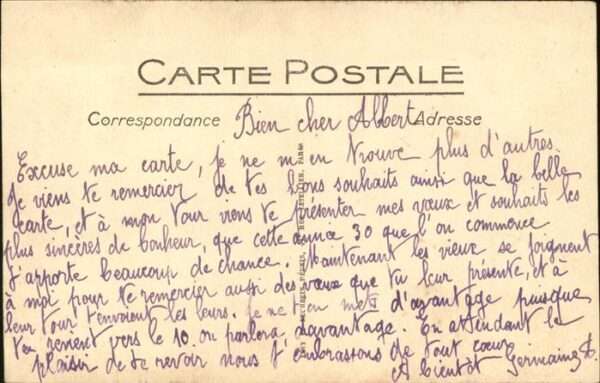 CARTE POSTALE
Correspondance
Adresse
Bien cher Albert
Excuse ma carte, je ne m'en trouve plus d'autres.
Je viens te remercier de tes bons souhaits ainsi que la belle
carte, et à mon tour viens te présenter mes vœux et souhaits les
plus sincères de bonheur, que cette année 30 que l'on commence
t'apporte beaucoup de chance. Maintenant les vieux se joignent
à moi pour te remercier aussi des vœux que tu leur présente, et à
leur tour t'envoient les leurs. je ne t'en mets d'avantage puisque
t'en revient vers le 10. on parlera davantage. En attendant le
plaisir de te revoir nous t'embrassons de tout cœur
A bientôt Germaine